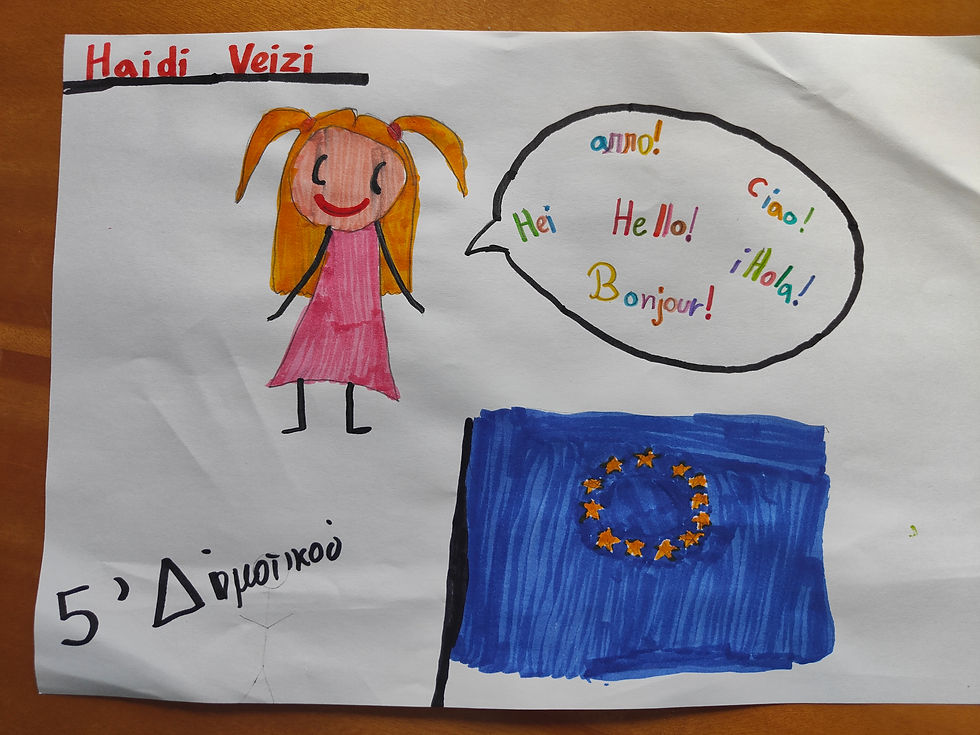 Haidi Veizi
алло!
Ciao!
Hei
Hello!
¡Hola!
Bonjour!
5' Δημοτικού